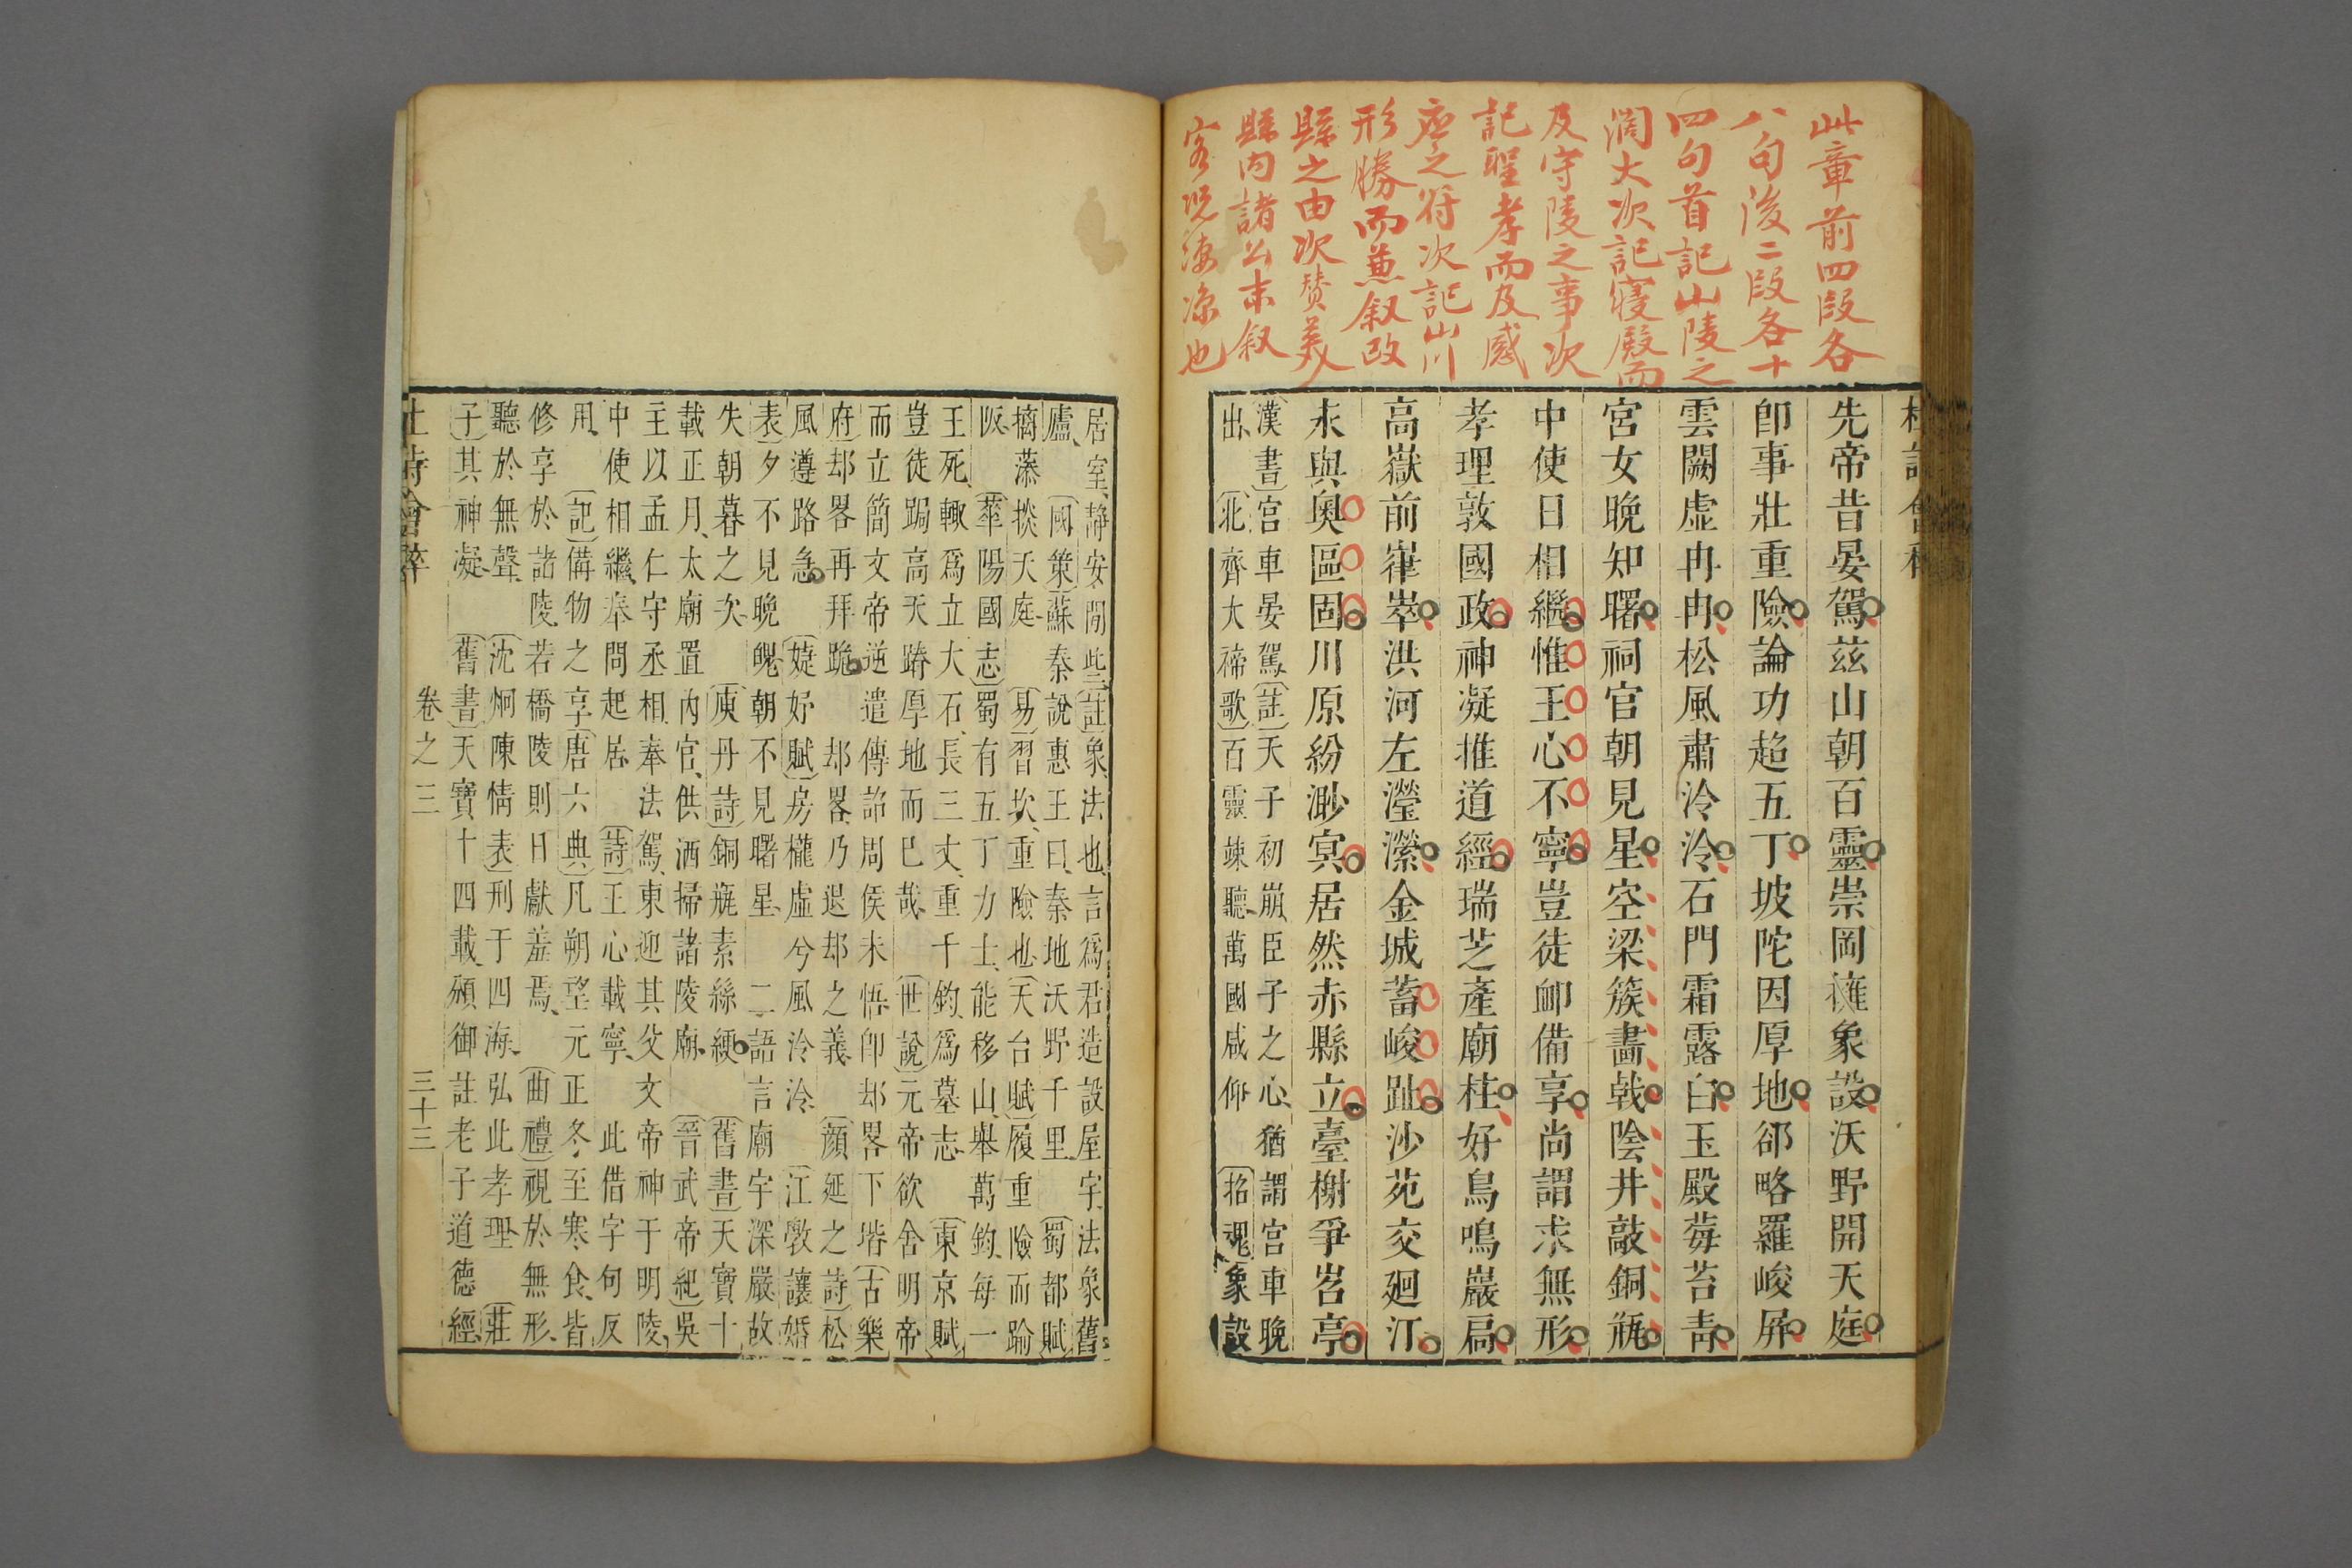 此章前四段各
八句後二段各十
四句首記山陵之
濶大次記寢殿而
及守陵之事次
記聖孝而及感
應之符次記山川
形勝而兼叙改
縣之由次賛美
縣內諸公末叙
客况凄凉也
先帝昔晏駕茲山朝百靈崇岡擁象設沃野開天庭
卽事壯重險論功超五丁坡陀因厚地郤略羅峻屏
雲闕虛冉冉松風肅泠泠石門霜露白玉殿莓苔靑
宮女晚知曙祠官朝見星空梁簇畵戟陰井敲銅瓶
中使日相繼惟王心不寧豈徒卹備享尚謂求無形
孝理敦國政神凝推道經瑞芝產廟柱好鳥鳴巖扃
高嶽前嵂崒洪河左瀅濴金城蓄峻趾沙苑交廻汀
永與奧區固川原紛渺冥居然赤縣立臺榭爭岧亭
漢書宮車晏駕註天子初崩臣子之心猶謂宮車晚
出北齊大禘歌百靈竦聽萬國咸仰 招魂象設
居室靜安閒些註象法也言爲君造設屋宇法象舊
廬 國策蘇秦說惠王曰秦地沃野千里 蜀都賦
摛藻掞天庭 易習坎重險也天台賦履重險而踰
阪 華陽國志蜀有五丁力士能移山舉萬鈞每一
王死輒爲立大石長三丈重千鈞爲墓志 東京賦
豈徒跼高天蹐厚地而已哉 世說元帝欲舍明帝
而立簡文帝逆遣傳詔周侯未悟卽却畧下堦古樂
府却畧再拜跪 却畧乃退却之義 顏延之詩松
風遵路急 婕妤賦房櫳虛兮風泠泠 江斆讓婚
表夕不見晚魄朝不見曙星 二語言廟宇深嚴故
失朝暮之次 庾丹詩銅瓶素絲綆 舊書天寶十
載正月太廟置內官供洒掃諸陵廟 晉武帝紀吳
主以孟仁守丞相奉法駕東迎其父文帝神于明陵
中使相繼奉問起居 詩王心載寧 此借字句反
用 記備物之享唐六典凡朔望元正冬至寒食皆
修享於諸陵若橋陵則日獻羞焉 曲禮視於無形
聽於無聲 沈炯陳情表刑于四海弘此孝理 莊
子其神凝 舊書天寶十四載頒御註老子道德經
卷之三 三十三